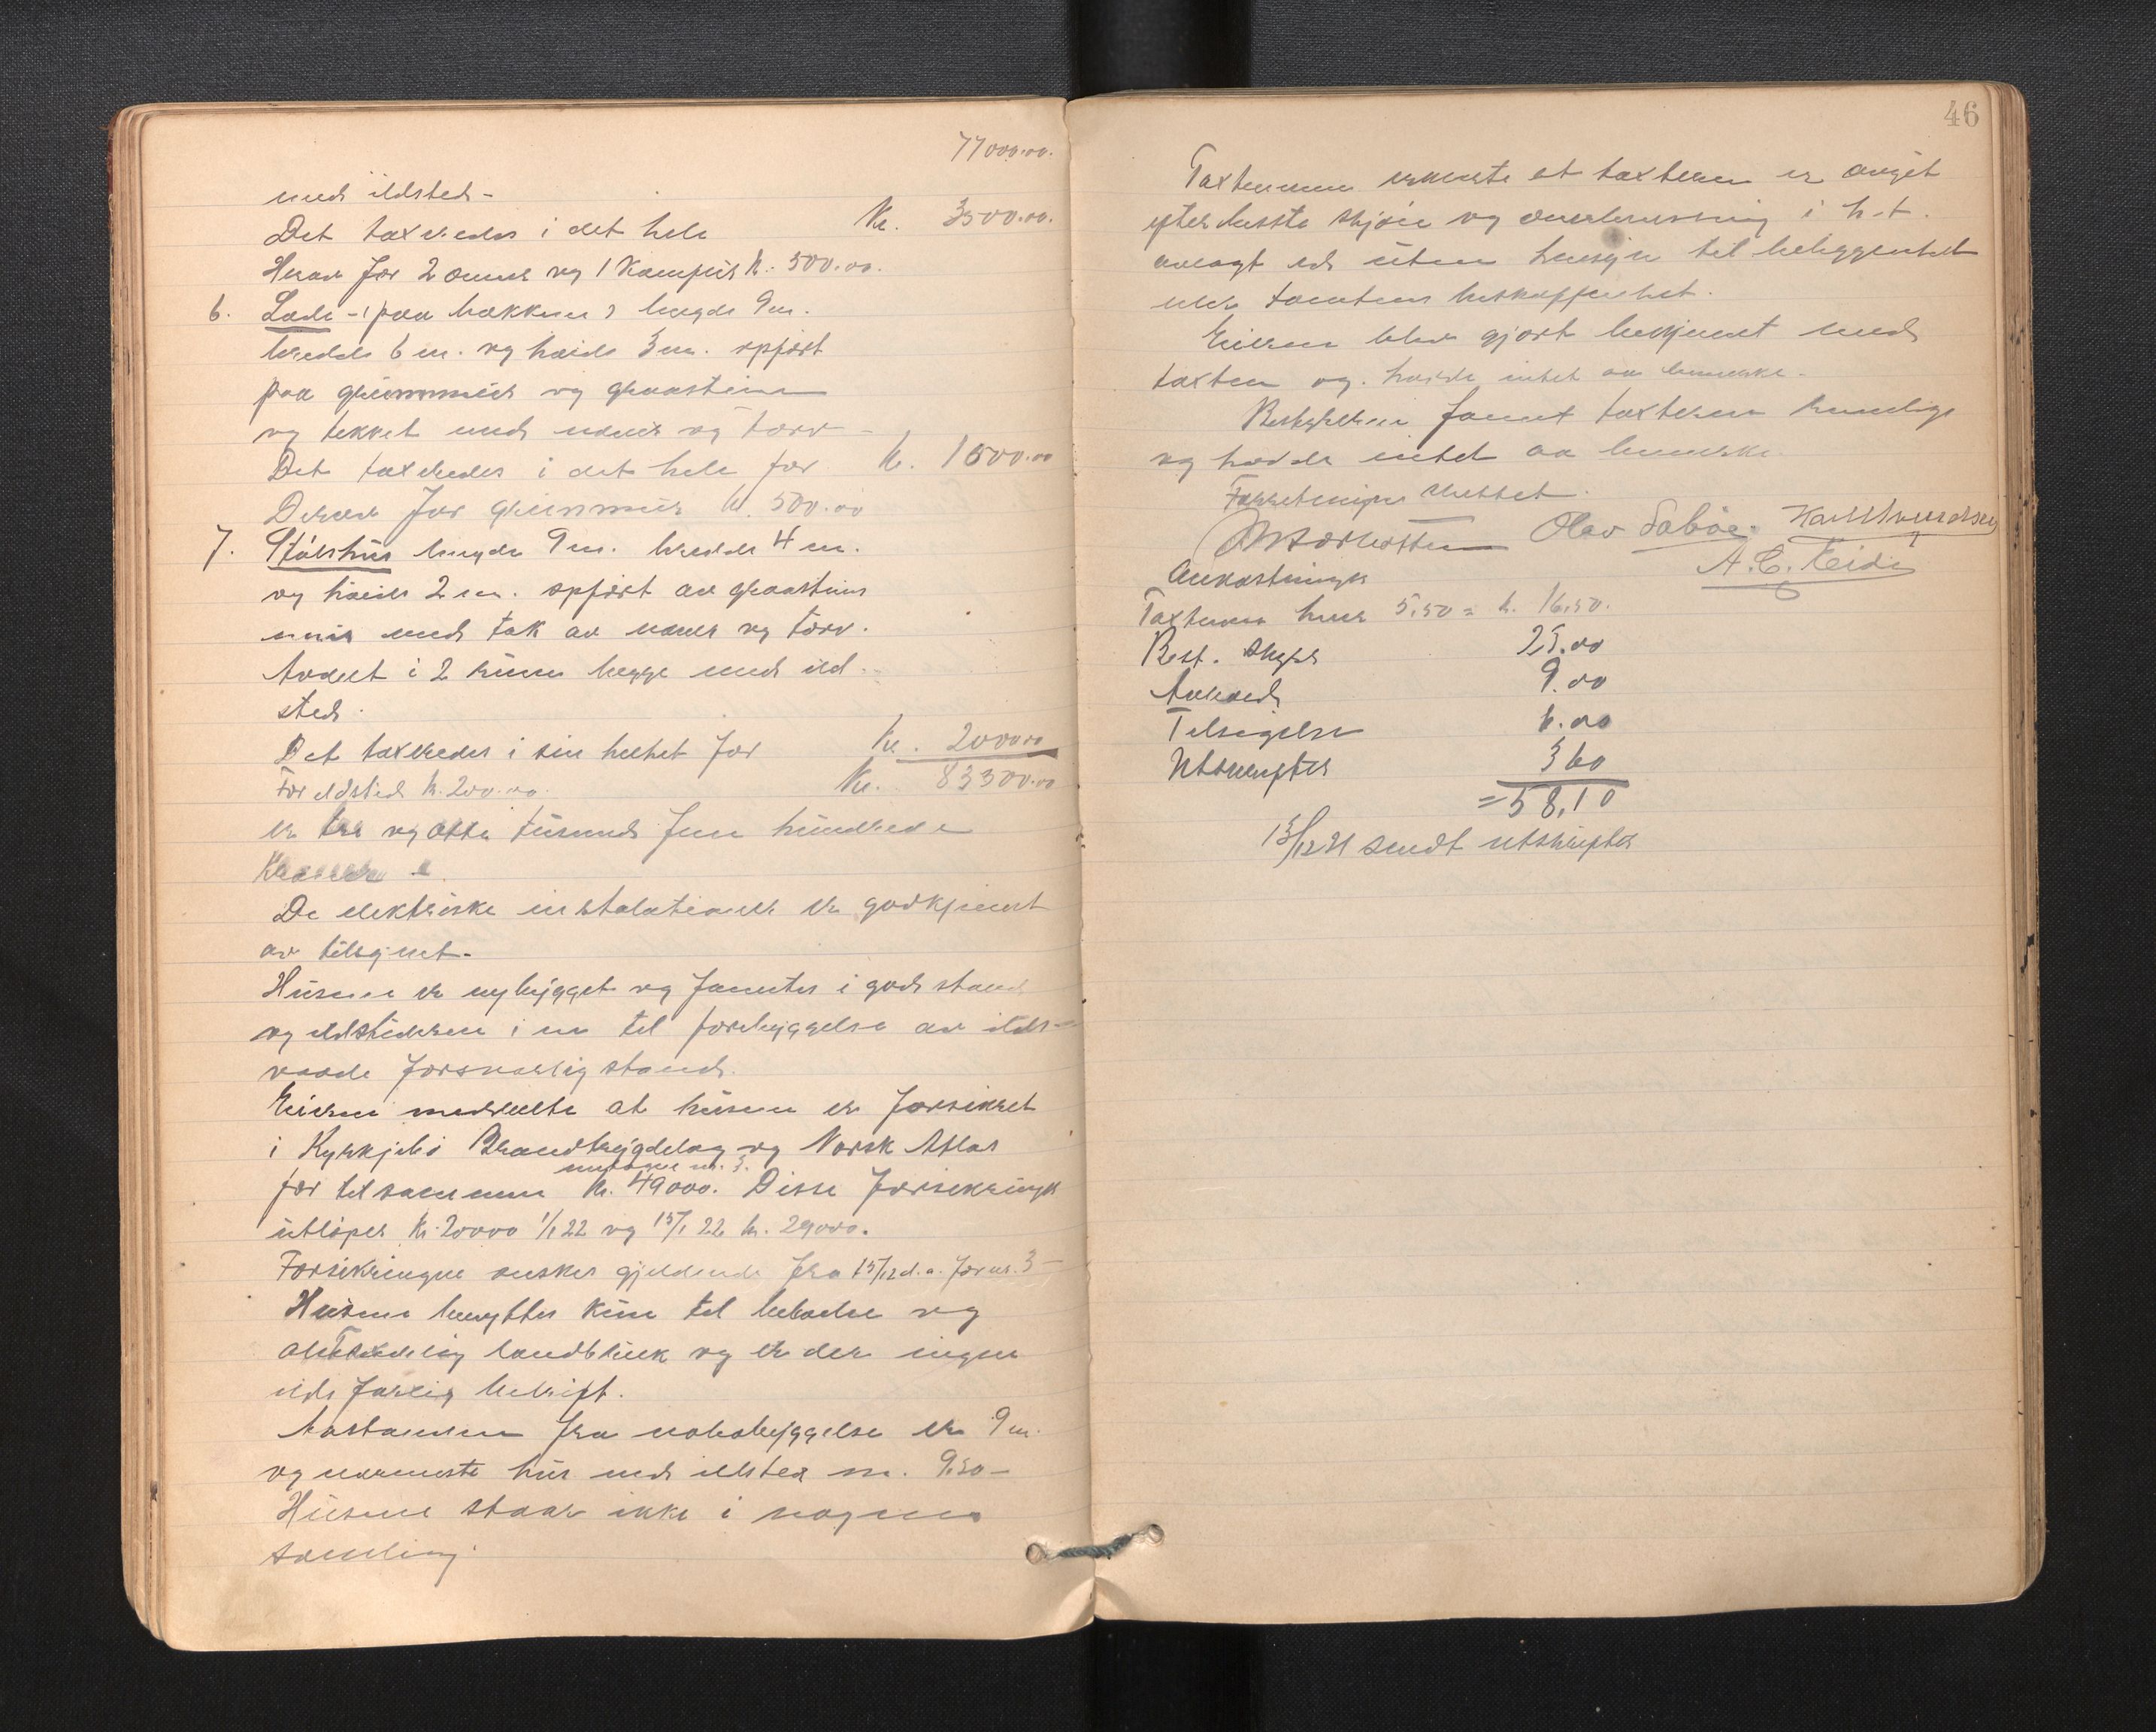 77000.00.
med ildsted-
Det taxeredes i det hele Kr. 3500.00.
Herav for 2 ovner og 1 Komfur kr. 500.00.
6. Løde - (paa bakken) længde 9 m.
bredde 6 m. og høide 3 m. opført
paa grunnmur og graastein
og tekket med never og torv -
Det taxeredes i det hele for kr. 1500.00
Derav for grunmur kr. 500.00
7. Stølshus længde 9 m. bredde 4 m.
og høide 2 m. opført av graasteins
mur med tak av never og torv.
Avdelt i 2 rum begge med ild
sted.
Det taxeredes i sin helhet for kr. 2000.00
For ildsted kr. 200.00. Kr. 83500.00
er tre og otti tusund fem hundrede
Kroner
De elektriske instalationer er godkjennt
av tilsynet.
Husene er nybygget og fanntes i god stand
og ildstederne i en til forebyggelse av ilds-
vaade forsvarlig stand.
Eieren meddelte at husene er forsikret
i Kyrkjebø Brandtrygdelag og Norsk Atlas
undtagen nr. 3.
for tilsammen kr. 49000. Disse forsikringer
utløper kr. 20000 1/1 22 og 15/1 22 kr. 29000.
Forsikringen ønskes gjeldende fra 15/12 d.a. for nr. 3-
Husene benyttes kun til beboelse og
almindelig landbruk og er der ingen
ildsfarlig bedrift.
Avstanden fra nabobyggelse er 9 m.
og nærmeste hus med ildsted m. 9.50-
Husene staar ikke i nogen
samling.
46
Taxtmennene erklærte at taxterne er avgit
efter beste skjøn og overbevisning i h.t.
avlagt ed uten hensyn til beliggenhet
eller tomtens beskaffenhet.
Eieren blev gjort bekjennt med
taxten og havde intet aa bemerke.
Bestyreren fannt taxterne rimelige
og havde intet aa bemerke.
Forretningen sluttet.
Olav Sæbøe. Karl Amundsen
A. E. Eide
Omkostninger
Taxtmenn hver 5,50 = kr. 16,50.
Best. skyss 25.00
Arbeid 9.00
Tilsigelse 4.00
Utskrifter 3 60
= 58,10
15/12 21 sendt utskrifter